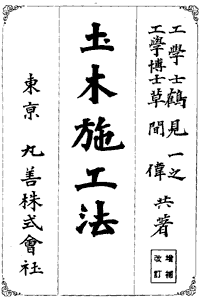 工學士鶴見一之
工學博士草間偉共著
增補
改訂
圡木施工法
東京丸善株式會社